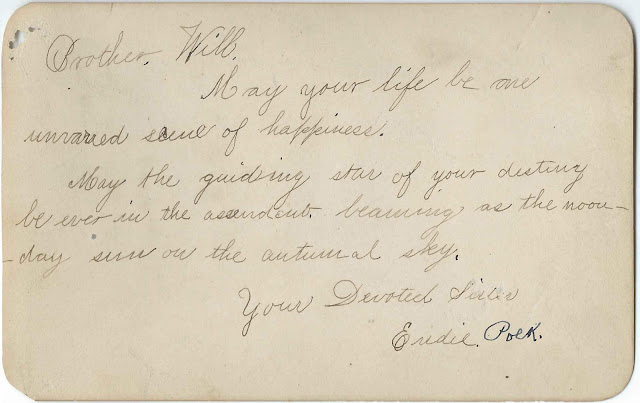 Brother. Will.
May your life be one
unvaried scene of happiness.
May the guiding star of your destiny
be ever in the ascendent. beaming as the noon-
-day sun on the autumal sky.
Your Devoted Sister
Eudie. Polk.